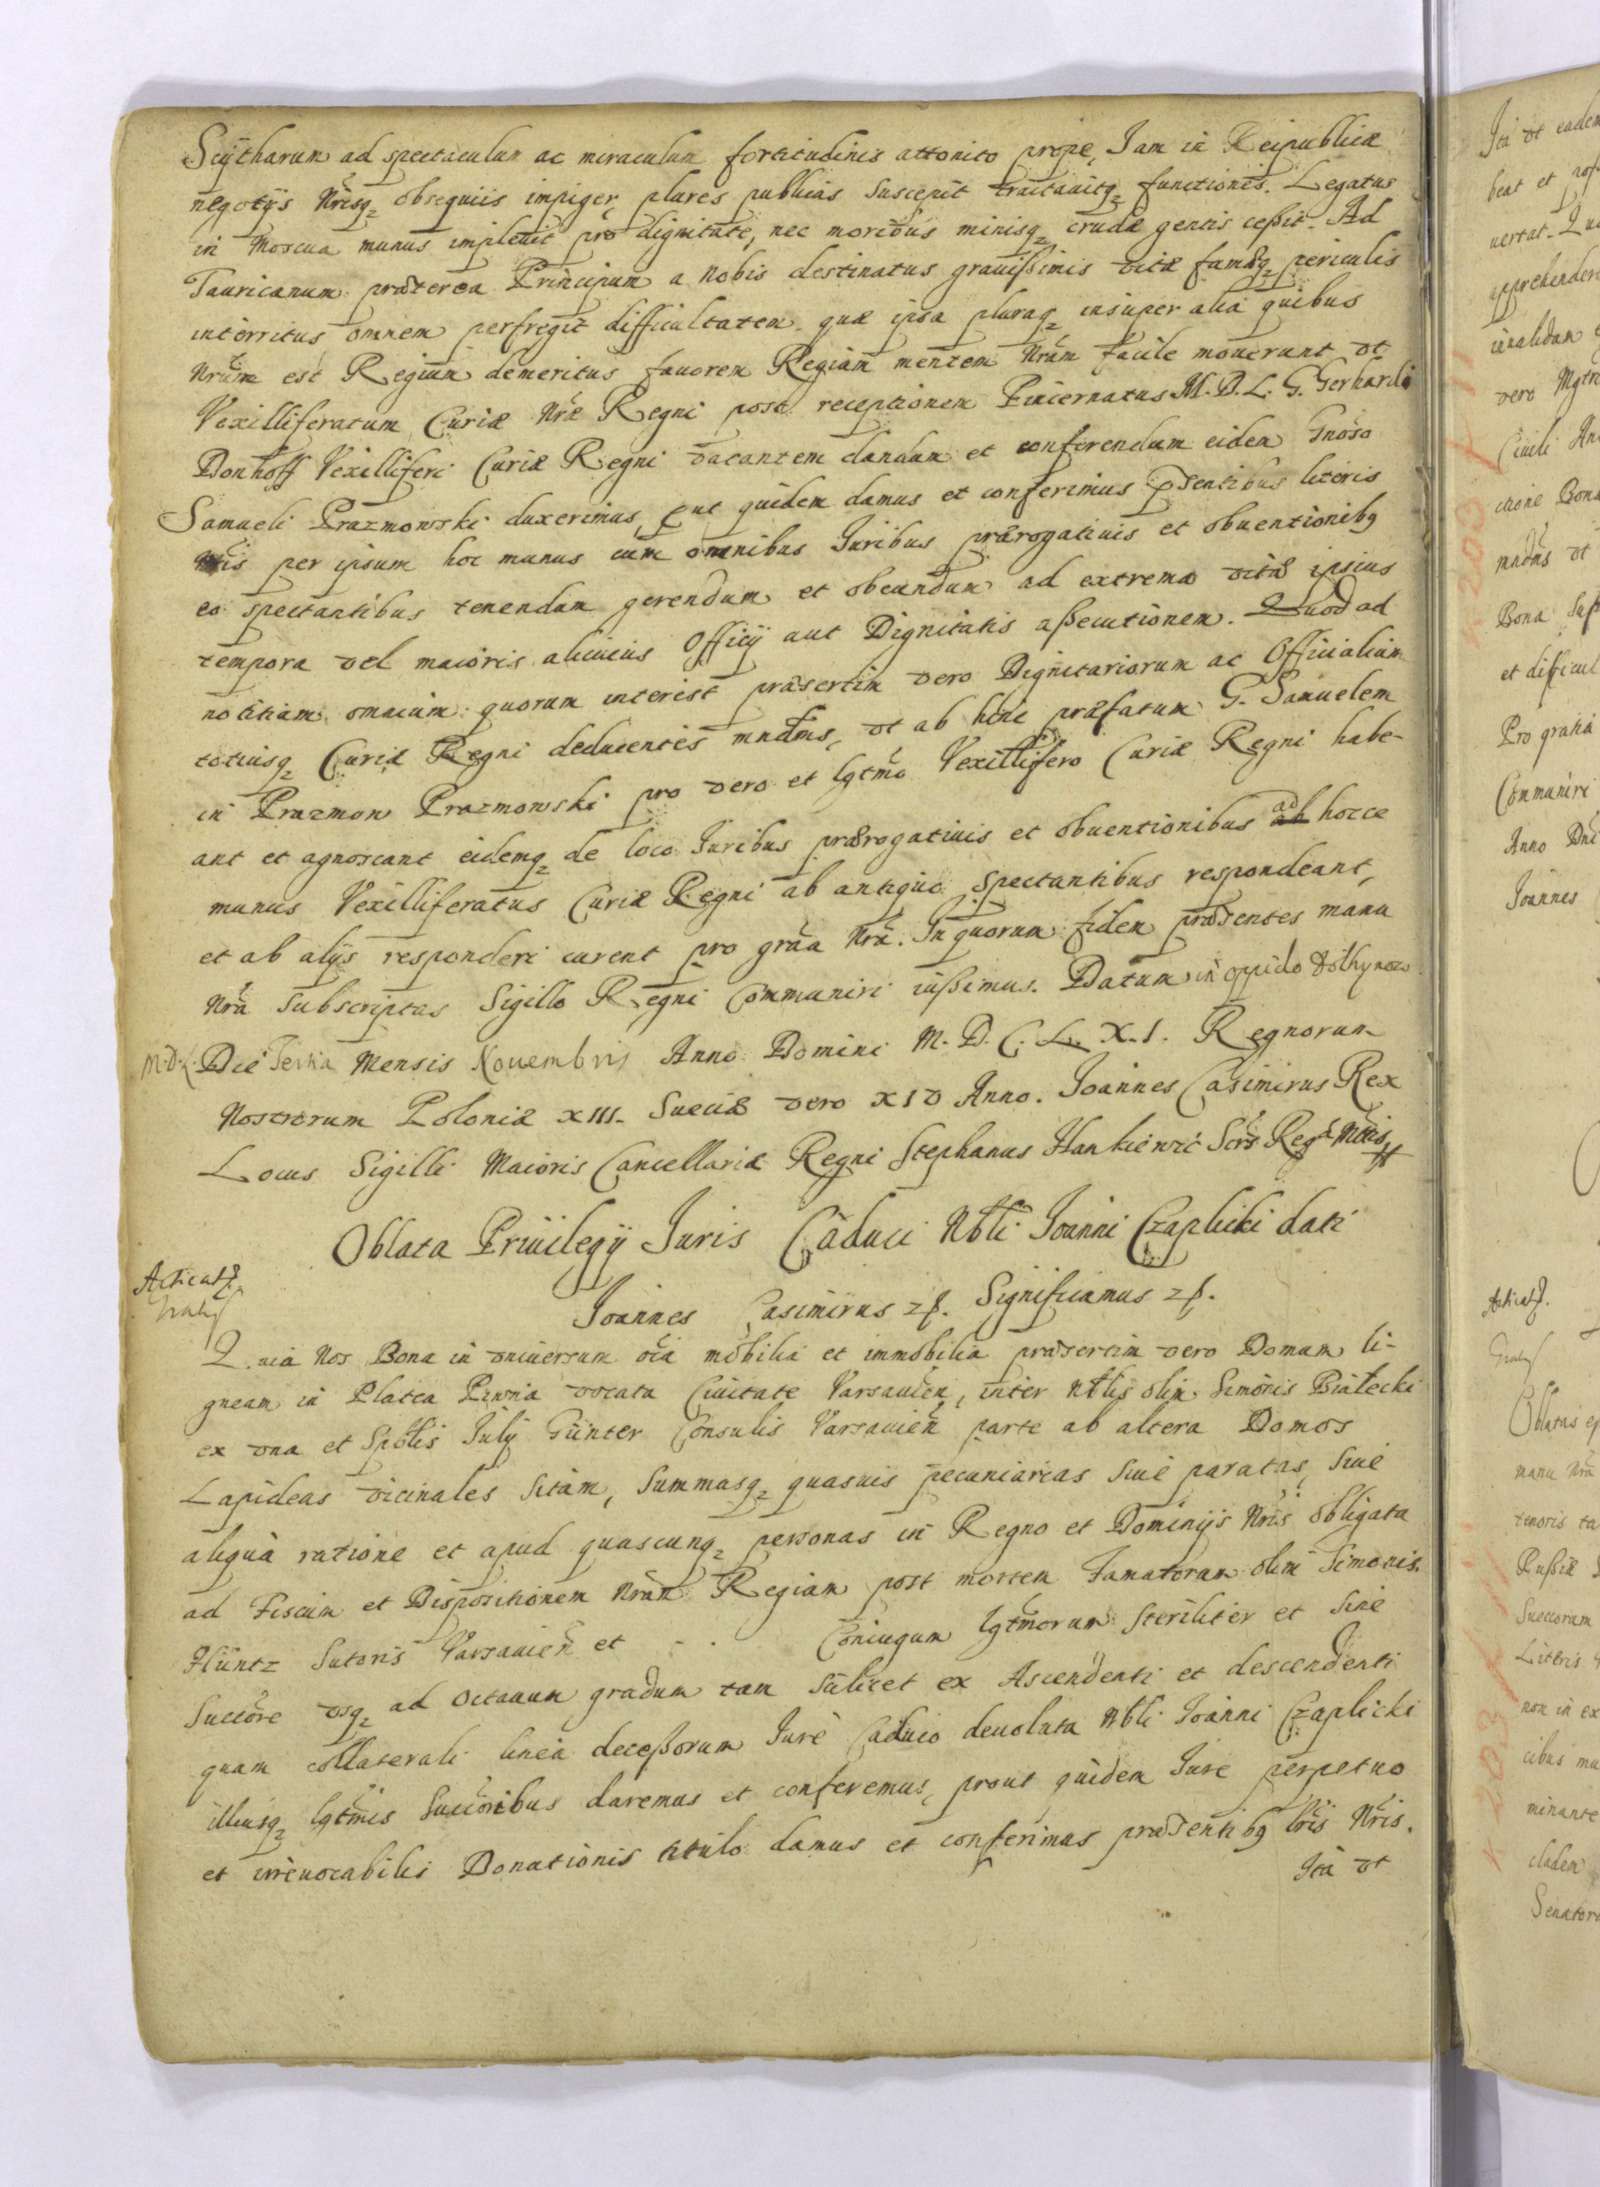 Scÿtharum ad spectaculum ac miraculum fortitudinis attonito prope, Iam in Reipublicæ
negotÿs Nrisq; obsequiis impiger plures publicas suscepit tractauitq; functiones. Legatus
in Moscua munus impleuit pro dignitate, nec moribus minisq; crudæ gentis ceßit. Ad
Tauricanum præterea Principum a nobis destinatus grauißimis vitæ famæq; periculis
interritus omnem perfregit difficultatem. quæ ipsa pluraq; insuper alia quibus
Nrum est Regium demeritus fauorem Regiam mentem Nram facile mouerunt vt
Vexilliferatum Curiæ Nræ Regni post receptionem Pincernatus M. D. L. G. Gerhardi
Donhoff Vexilliferi Curiæ Regni vacantem dandum et conferendum eidem Gnoso
Samueli Prazmowski duxerimus, put quidem damus et conferimus psentibus literis
Nris per ipsum hoc munus cum omnibus Iuribus prærogatiuis et obuentionibq
eo spectantibus tenendum gerendum et obeundum ad extrema vitæ ipsius
tempora vel maioris alicuius Officÿ aut Dignitatis aßecutionem. Quod ad
notitiam omnium quorum interest præsertim vero Dignitariorum ac Officialium
totiusq; Curiæ Regni deducentes mndms, vt ab hinc præfatum G. Samuelem
in Prazmow Prazmowski pro vero et lgtmo Vexillifero Curiæ Regni habe-
ant et agnoscant eidemq; de loco Iuribus prærogatiuis et obuentionibus ad hocce
munus Vexilliferatus Curiæ Regni ab antiquo spectantibus respondeant,
et ab alÿs responderi curent pro graa Nra. In quorum fidem præsentes manu
Nra subscriptas Sigillo Regni Communiri iußimus. Datum in oppido
M.D.L. Die Tertia Mensis Nouembris Anno Domini M. D. C. L. X. I. Regnorum
Nostrorum Poloniæ XIII. Sueciæ vero XIV Anno. Ioannes Casimirus Rex
Locus Sigilli Maioris Cancellariæ Regni Stephanus Hankiewic Scrs Rege Mttis
Oblata Priuilegÿ Iuris Caduci Nbli Ioanni Czaplicki dati
Ioannes Casimirus . Significamus .
Quia Nos Bona in vniuersum oia mobilia et immobilia præsertim vero Domum li-
gneam in Platea Piwna vocata Ciuitate Varsauien, inter Nblis olim Simonis Białecki
ex vna et Spblis Iulÿ Günter Consulis Varsauien parte ab altera Domos
Lapideas vicinales sitam, Summasq; quasuis pecuniarias siue paratas, siue
aliqua ratione et apud quascunq; personas in Regno et Dominÿs Nris obligata
ad Fiscum et Dispositionem Nram Regiam post mortem Famatorum olim Simonis
Hüntz Sutoris Varsauien et . . Coniugum lgtmorum steriliter et sine
Succore vsq; ad Octauum gradum tam scilicet ex Ascendenti et descendenti
quam collaterali linea deceßorum Iure Caduco deuoluta Nbli Ioanni Czaplicki
illiusq; lgtmis Succoribus daremus et conferemus, prout quidem Iure perpetuo
et irreuocabilis Donationis titulo damus et conferimus præsentibq lris Nris.
Ita vt